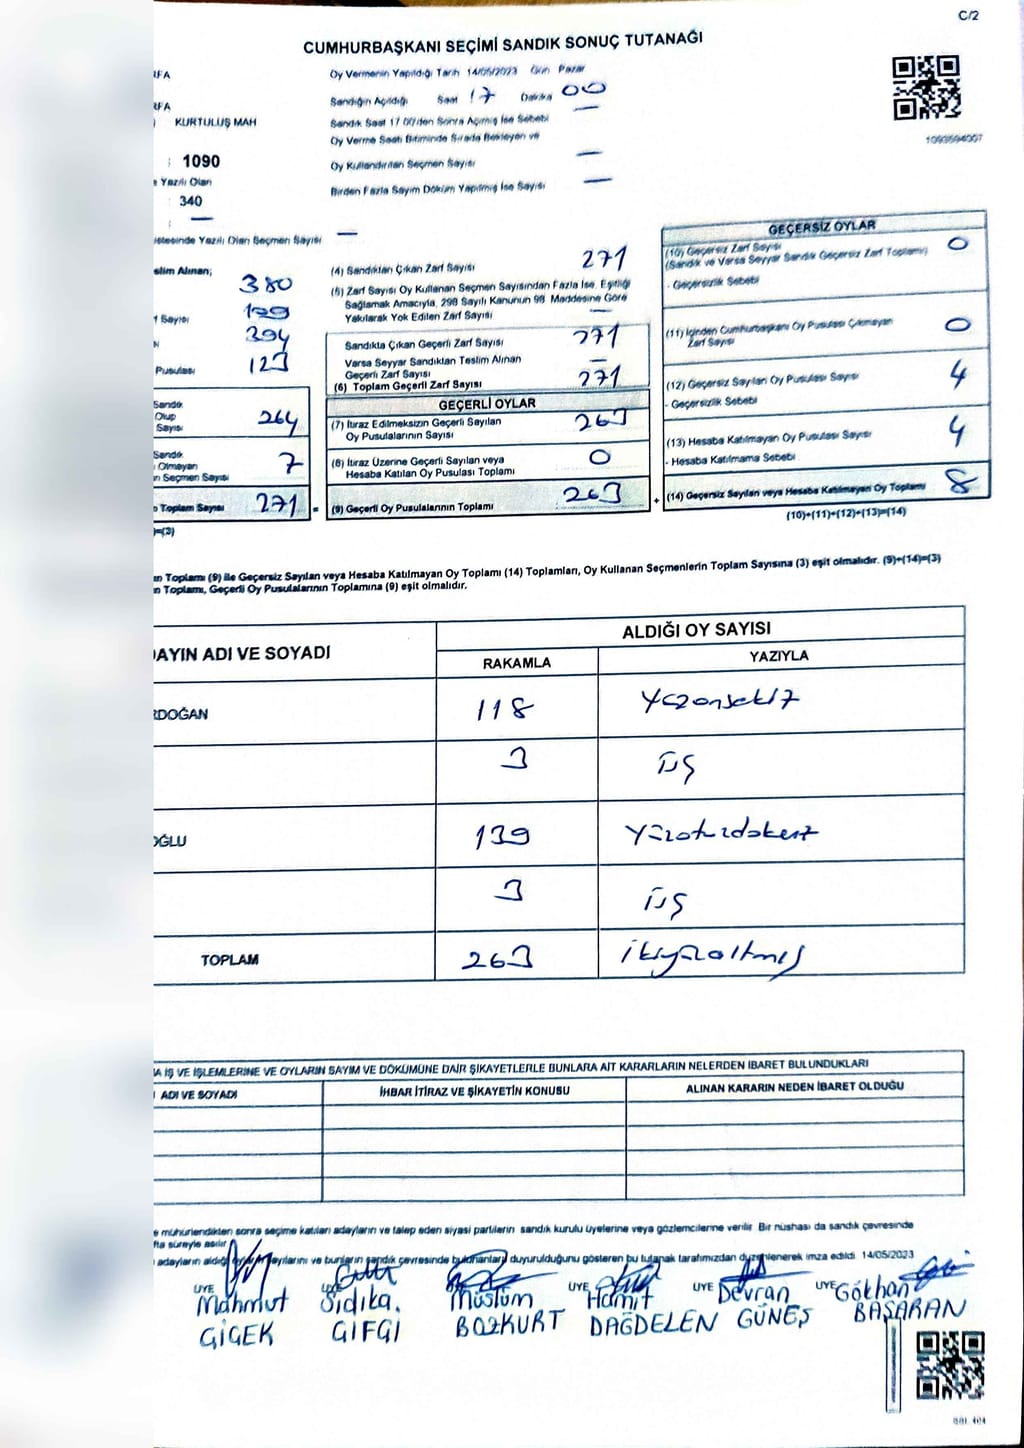 C/2
CUMHURBAŞKANI SEÇİMİ SANDIK SONUÇ TUTANAĞI
RFA
Oy Vermenin Yapıldığı Tarih 14/05/2023 Gün Pazar
Sandığın Açıldığı Saat 17 Dakika 00
RFA
KURTULUŞ MAH
Sandık Saat 17.00'den Sonra Açılmış İse Sebebi
Oy Verme Saati Bitiminde Sırada Bekleyen ve
: 1090
Oy Kullandırılan Seçmen Sayısı —
e Yazılı Olan
: 340
Birden Fazla Sayım Döküm Yapılmış İse Sayısı —
: —
istesinde Yazılı Olan Seçmen Sayısı —
slim Alınan;
380
ı Sayısı
394
Pusulası 123
Sandık
Olup
Sayısı 264
Sandık
Olmayan
n Seçmen Sayısı 7
Toplam Sayısı 271 =
)=(3)
(4) Sandıktan Çıkan Zarf Sayısı 271
(5) Zarf Sayısı Oy Kullanan Seçmen Sayısından Fazla İse, Eşitliği
Sağlamak Amacıyla, 298 Sayılı Kanunun 98. Maddesine Göre
Yakılarak Yok Edilen Zarf Sayısı —
Sandıkta Çıkan Geçerli Zarf Sayısı 271
Varsa Seyyar Sandıktan Teslim Alınan
Geçerli Zarf Sayısı —
(6) Toplam Geçerli Zarf Sayısı 271
GEÇERLİ OYLAR
(7) İtiraz Edilmeksizin Geçerli Sayılan
Oy Pusulalarının Sayısı 263
(8) İtiraz Üzerine Geçerli Sayılan veya
Hesaba Katılan Oy Pusulası Toplamı 0
(9) Geçerli Oy Pusulalarının Toplamı 263 +
1093594007
GEÇERSİZ OYLAR
(10) Geçersiz Zarf Sayısı 0
(Sandık ve Varsa Seyyar Sandık Geçersiz Zarf Toplamı)
- Geçersizlik Sebebi
(11) İçinden Cumhurbaşkanı Oy Pusulası Çıkmayan
Zarf Sayısı 0
(12) Geçersiz Sayılan Oy Pusulası Sayısı 4
- Geçersizlik Sebebi
(13) Hesaba Katılmayan Oy Pusulası Sayısı 4
- Hesaba Katılmama Sebebi
(14) Geçersiz Sayılan veya Hesaba Katılmayan Oy Toplamı 8
(10)+(11)+(12)+(13)=(14)
n Toplamı (9) ile Geçersiz Sayılan veya Hesaba Katılmayan Oy Toplamı (14) Toplamları, Oy Kullanan Seçmenlerin Toplam Sayısına (3) eşit olmalıdır. (9)+(14)=(3)
n Toplamı, Geçerli Oy Pusulalarının Toplamına (9) eşit olmalıdır.
AYIN ADI VE SOYADI
ALDIĞI OY SAYISI
RAKAMLA YAZIYLA
RDOĞAN 118 Yüzonsekiz
3 üş
OĞLU 139 Yüzotuzdokuz
3 üş
TOPLAM 263 ikiyüzaltmış
A İŞ VE İŞLEMLERİNE VE OYLARIN SAYIM VE DÖKÜMÜNE DAİR ŞİKAYETLERLE BUNLARA AİT KARARLARIN NELERDEN İBARET BULUNDUKLARI
ADI VE SOYADI İHBAR İTİRAZ VE ŞİKAYETİN KONUSU ALINAN KARARIN NEDEN İBARET OLDUĞU
e mühürlendikten sonra seçime katılan adayların ve talep eden siyasi partilerin sandık kurulu üyelerine veya gözlemcilerine verilir. Bir nüshası da sandık çevresinde
fta süreyle asılır
adayların aldığı oy sayılarını ve bunların sandık çevresinde duyurulduğunu gösteren bu tutanak tarafımızdan düzenlenerek imza edildi. 14/05/2023
ÜYE ÜYE ÜYE ÜYE ÜYE
Mahmut Sıdıka. Müslüm Hamit Devran Gökhan
ÇİÇEK ÇİFÇİ BOZKURT DAĞDELEN GÜNEŞ BAŞARAN